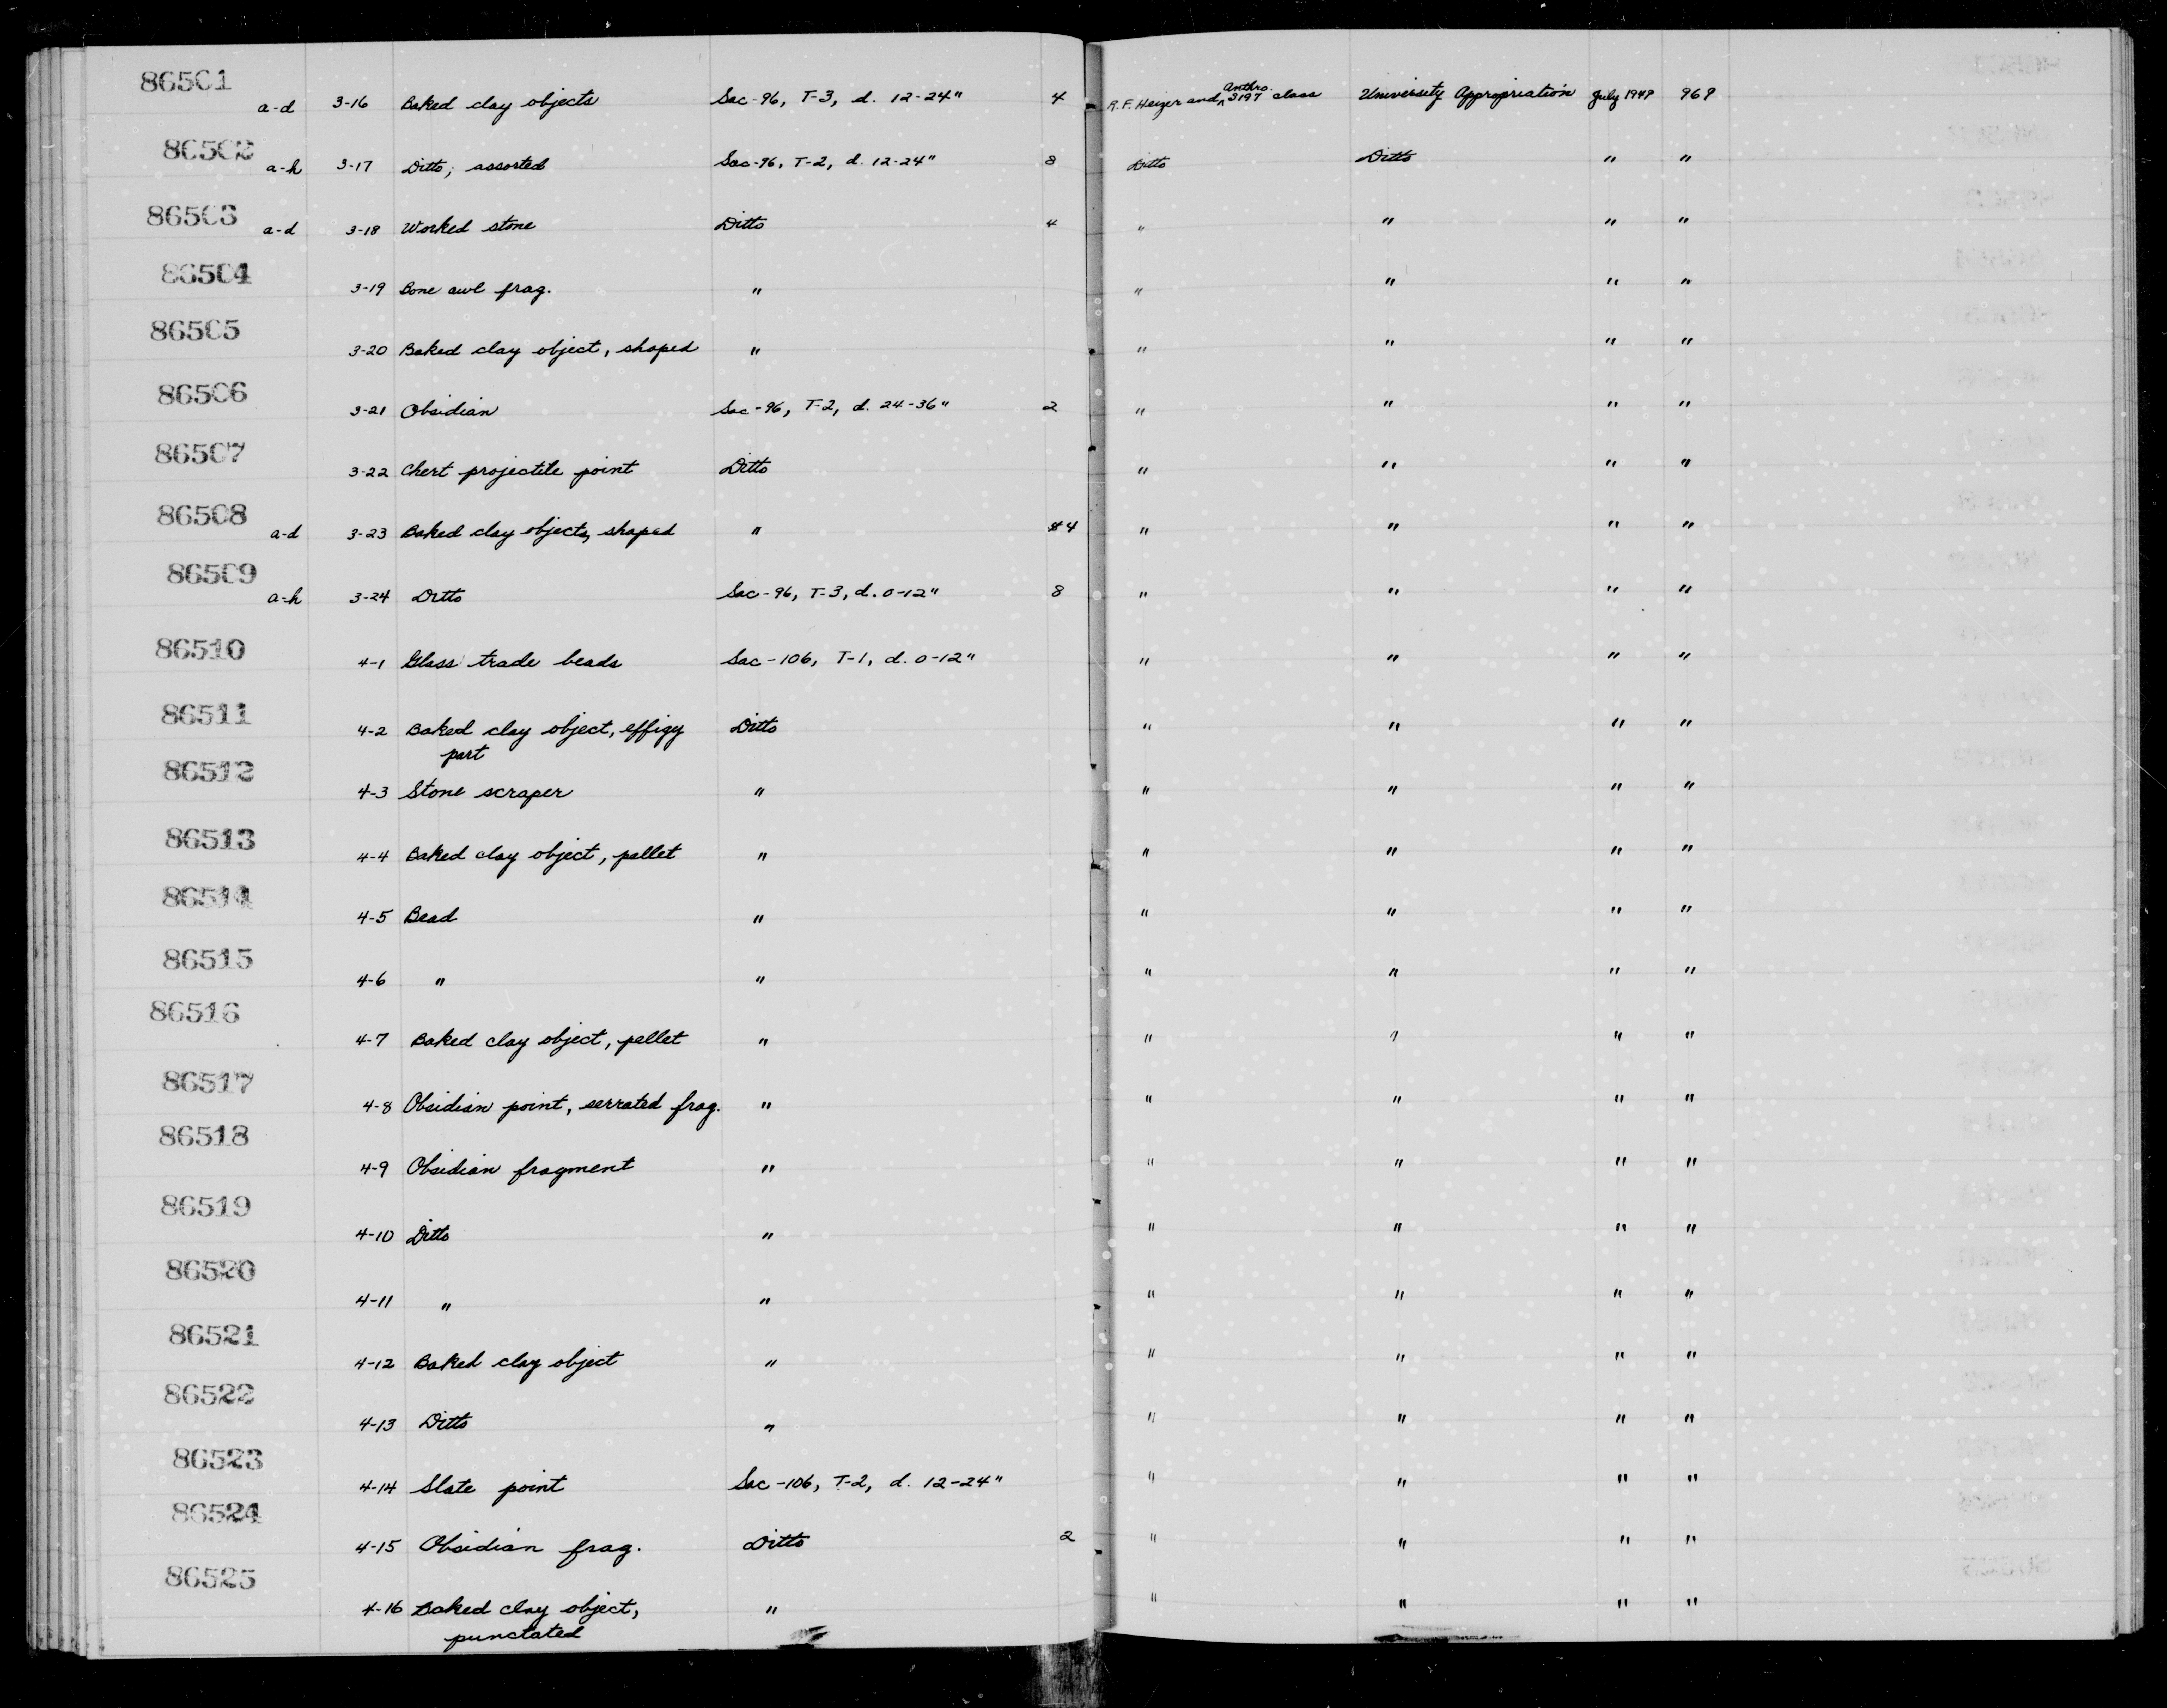 86501 a-d 3-16 Baked clay objects Sac-96, T-3, d. 12-24" 4 R.F. Heizer and Anthro. S197 class University Appropriation July 1949 969
86502 a-h 3-17 Ditto; assorted Sac-96, T-2, d. 12-24" 8 Ditto Ditto " "
86503 a-d 3-18 Worked stone Ditto 4 " " " "
86504 3-19 Bone awl frag. " " " " "
86505 3-20 Baked clay object, shaped " " " " "
86506 3-21 Obsidian Sac-96, T-2, d. 24-36" 2 " " " "
86507 3-22 Chert projectile point Ditto " " " "
86508 a-d 3-23 Baked clay objects, shaped " 4 " " " "
86509 a-h 3-24 Ditto Sac-96, T-3, d. 0-12" 8 " " " "
86510 4-1 Glass trade beads Sac-106, T-1, d. 0-12" " " " "
86511 4-2 Baked clay object, effigy Ditto " " " "
part
86512 4-3 Stone scraper " " " " "
86513 4-4 Baked clay object, pellet " " " " "
86514 4-5 Bead " " " " "
86515 4-6 " " " " " "
86516 4-7 Baked clay object, pellet " " " " "
86517 4-8 Obsidian point, serrated frag. " " " " "
86518 4-9 Obsidian fragment " " " " "
86519 4-10 Ditto " " " " "
86520 4-11 " " " " " "
86521 4-12 Baked clay object " " " " "
86522 4-13 Ditto " " " " "
86523 4-14 Slate point Sac-106, T-2, d. 12-24" " " " "
86524 4-15 Obsidian frag. Ditto 2 " " " "
86525 4-16 Baked clay object, " " " " "
punctated